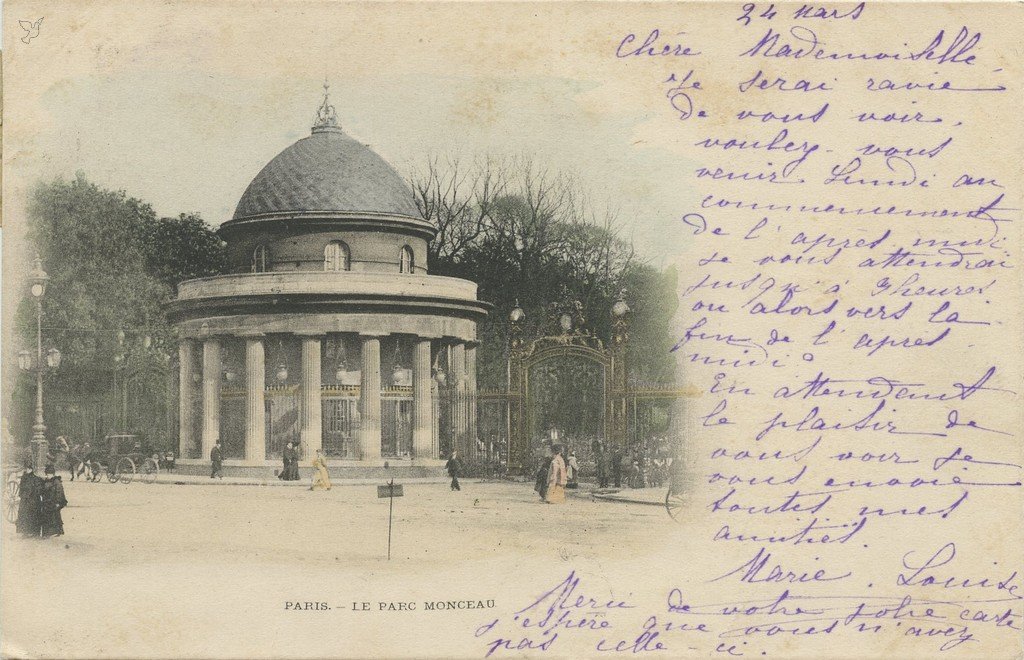 24 Mars
Chère Mademoiselle
Je serai ravie
de vous voir.
voulez-vous
venir Lundi au
commencement
de l'après midi
je vous attendrai
jusqu'à 3 heures
ou alors vers la
fin de l'après
midi?
En attendant
le plaisir de
vous voir je
vous envoie
toutes mes
amitiés.
Marie. Louise
Merci de votre jolie carte
j'espère que vous n'avez
pas celle-ci.
PARIS. — LE PARC MONCEAU